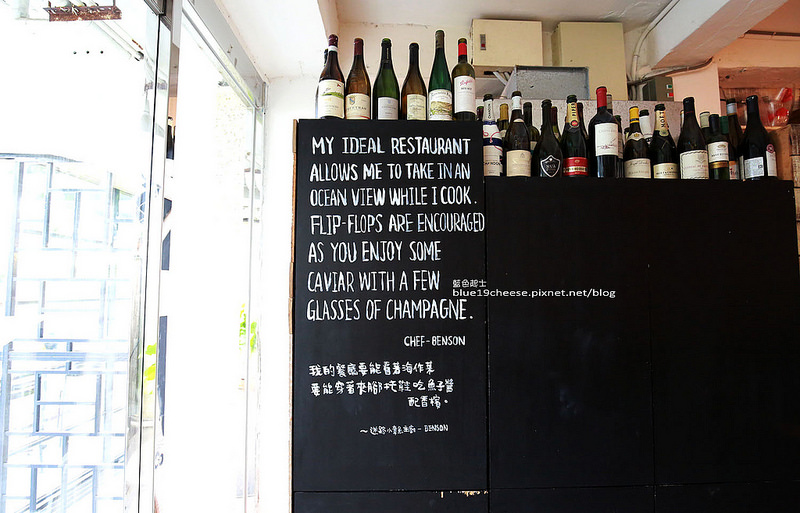 MY IDEAL RESTAURANT
ALLOWS ME TO TAKE IN AN
OCEAN VIEW WHILE I COOK.
FLIP-FLOPS ARE ENCOURAGED
AS YOU ENJOY SOME
CAVIAR WITH A FEW
GLASSES OF CHAMPAGNE.
CHEF-BENSON
我的餐廳要能看著海作菜
要能穿著夾腳拖鞋吃魚子醬
配香檳。
- BENSON
藍色起士
blue19cheese.pixnet.net/blog